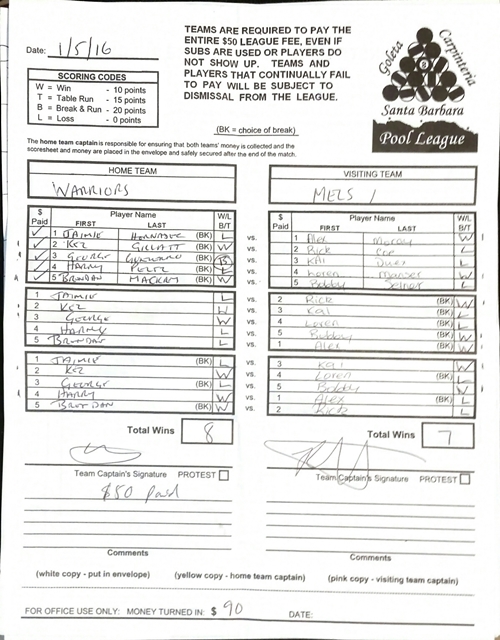 Date: 1/5/16
TEAMS ARE REQUIRED TO PAY THE
ENTIRE $50 LEAGUE FEE, EVEN IF
SUBS ARE USED OR PLAYERS DO
NOT SHOW UP. TEAMS AND
PLAYERS THAT CONTINUALLY FAIL
TO PAY WILL BE SUBJECT TO
DISMISSAL FROM THE LEAGUE.
SCORING CODES
W = Win - 10 points
T = Table Run - 15 points
B = Break & Run - 20 points
L = Loss - 0 points
Goleta Carpinteria
8
Santa Barbara
Pool League
(BK = choice of break)
The home team captain is responsible for ensuring that both teams' money is collected and the
scoresheet and money are placed in the envelope and safely secured after the end of the match.
HOME TEAM
WARRIORS
VISITING TEAM
MELS 1
$ Paid Player Name W/L
FIRST LAST B/T
1 JAIMIE (BK) L
2 KEZ GILLATT (BK) W
3 GEORGE (BK) B
4 HARRY PEREZ (BK) L
5 BRENDAN MACKEY (BK) W
vs.
vs.
vs.
vs.
vs.
$ Paid Player Name W/L
FIRST LAST B/T
1 Alex W
2 Rick L
3 Kal L
4 Loren W
5 Bobby L
1 JAIMIE L
2 KEZ L
3 GEORGE W
4 HARRY L
5 BRENDAN L
vs.
vs.
vs.
vs.
vs.
2 Rick (BK) W
3 Kal (BK) W
4 Loren (BK) L
5 Bobby (BK) W
1 Alex (BK) W
1 JAIMIE (BK) L
2 KEZ W
3 GEORGE (BK) L
4 HARRY W
5 BRENDAN (BK) W
vs.
vs.
vs.
vs.
vs.
3 Kal W
4 Loren (BK) L
5 Bobby W
1 Alex (BK) L
2 Rick L
Total Wins 8
Total Wins 7
Team Captain's Signature PROTEST
Team Captain's Signature PROTEST
$50 Paid
Comments
Comments
(white copy - put in envelope) (yellow copy - home team captain) (pink copy - visiting team captain)
FOR OFFICE USE ONLY: MONEY TURNED IN: $ 90 DATE: